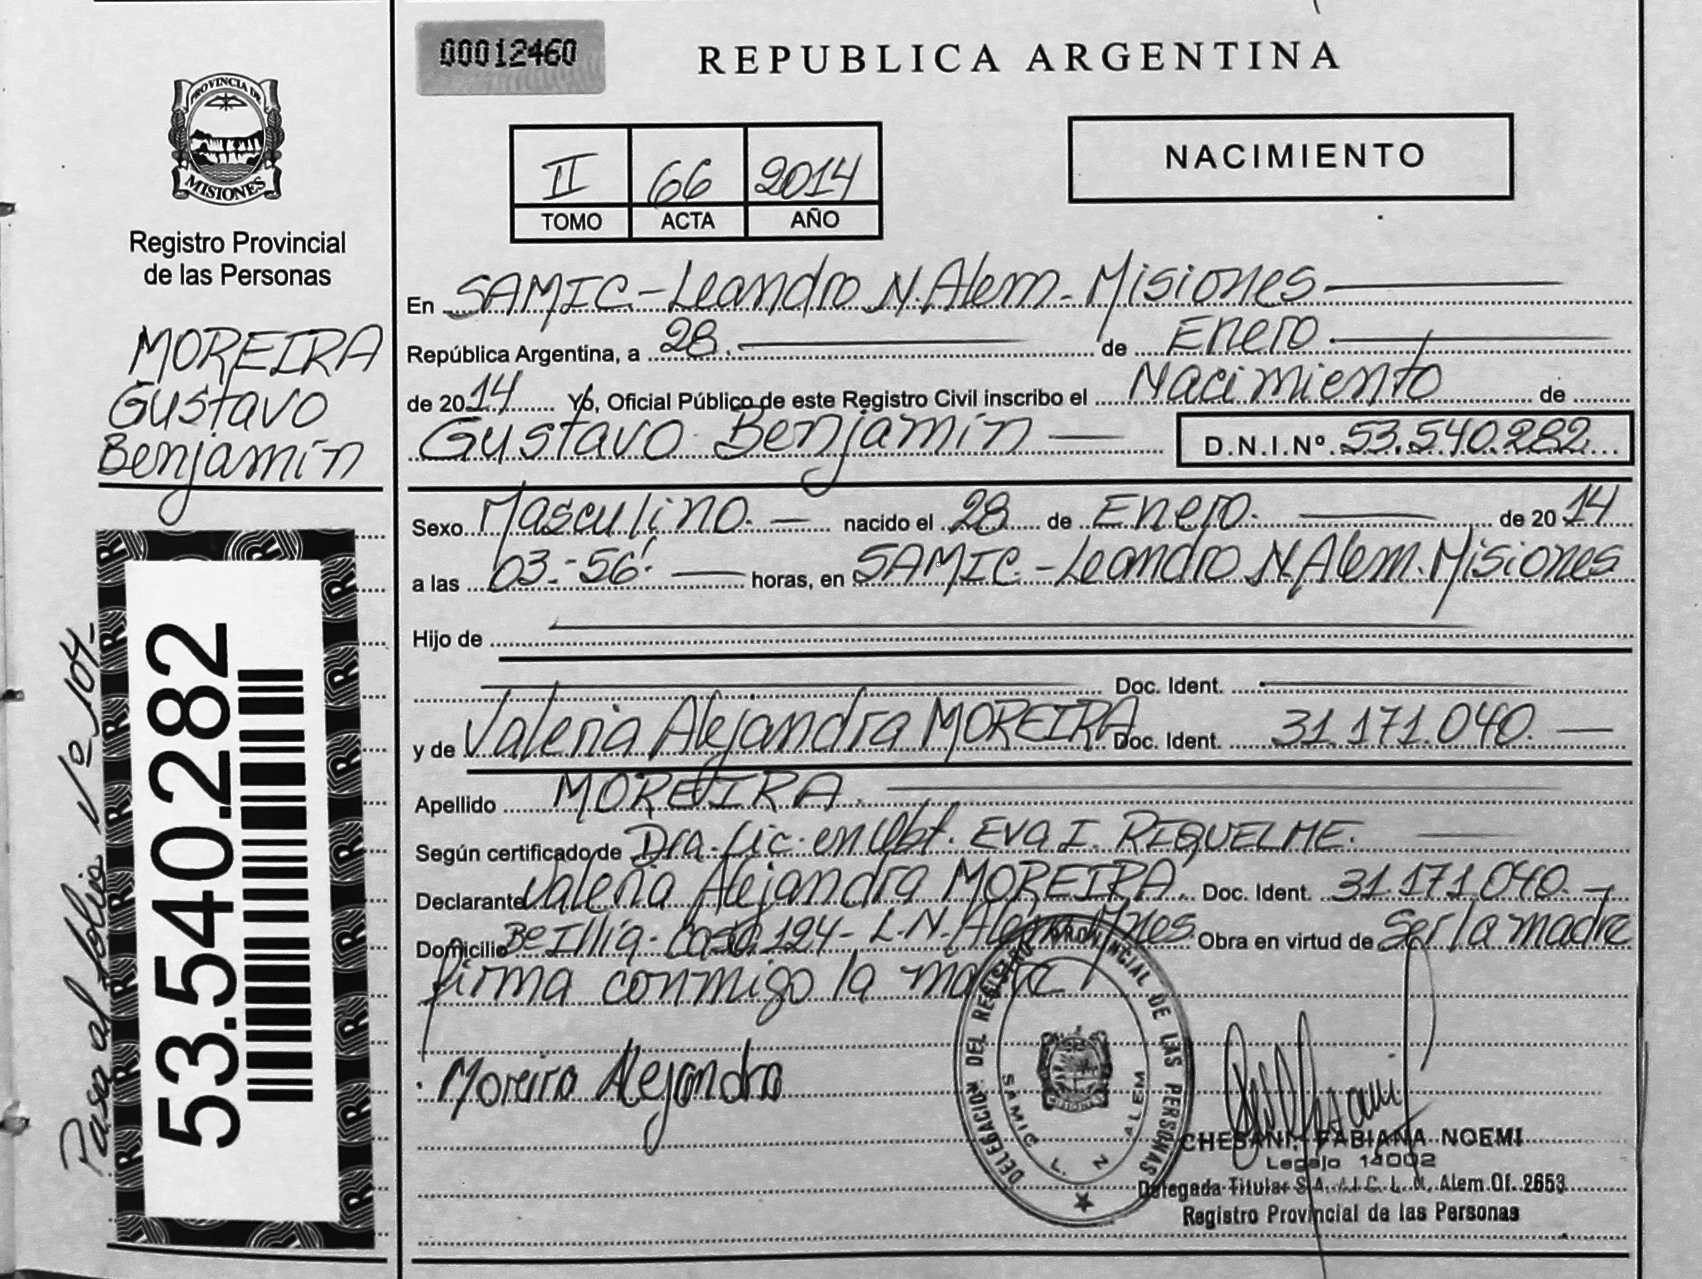 00012460
REPUBLICA ARGENTINA
PROVINCIA DE
MISIONES
Registro Provincial
de las Personas
II 66 2014
TOMO ACTA AÑO
NACIMIENTO
MOREIRA
Gustavo
Benjamín
En SAMIC-Leandro N. Alem- Misiones
República Argentina, a 28. de Enero
de 2014 Yo, Oficial Público de este Registro Civil inscribo el Nacimiento de
Gustavo Benjamín D.N.I.Nº 53.540.282
Sexo Masculino. nacido el 28 de Enero. de 2014
a las 03.-56' horas, en SAMIC.-Leandro N. Alem. Misiones
Hijo de
Doc. Ident.
y de Valeria Alejandra MOREIRA Doc. Ident. 31.171.040.
Apellido MOREIRA.
Según certificado de Dra. Lic. en Obt. Eva I. RIQUELME.
Declarante Valeria Alejandra MOREIRA. Doc. Ident. 31.171.040.-
Domicilio Casa 124- L.N. Alem Mnes Obra en virtud de Ser la madre
firma conmigo la madre
Moreira Alejandra
DELEGACION DEL REGISTRO PROVINCIAL DE LAS PERSONAS
SAMIC L. N ALEM
CHESANI, FABIANA NOEMI
Legajo 14002
Delegada Titular S.A.M.I.C. L. N. Alem Of. 2653
Registro Provincial de las Personas
53.540.282
Pasa al folio Nº 104-